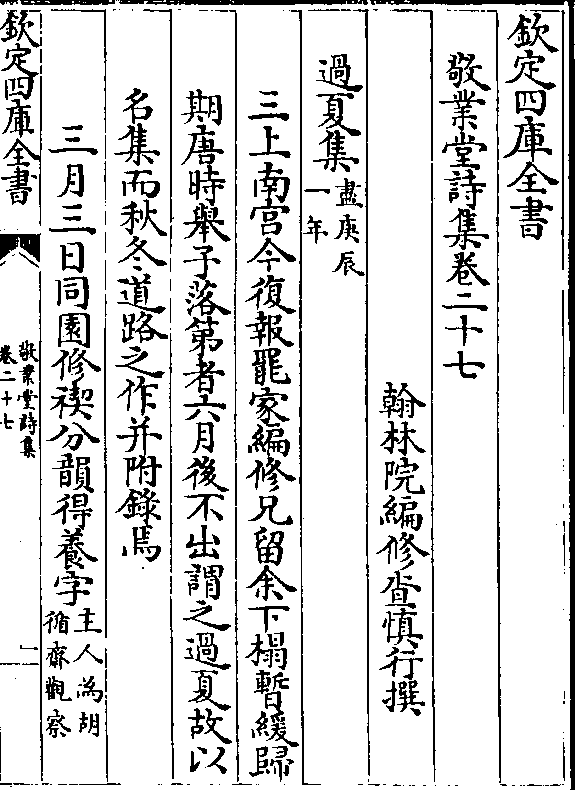 欽定四庫全書
敬業堂詩集卷二十七
翰林院編修查慎行撰
過夏集盡庚辰一年
三上南宮今復報罷家編修兄留余下榻暫緩歸
期唐時舉子落第者六月後不出謂之過夏故以
名集而秋冬道路之作并附錄焉
三月三日同園修禊分韻得養字主人為胡循齋觀察
欽定四庫全書
敬業堂詩集
卷二十七
一